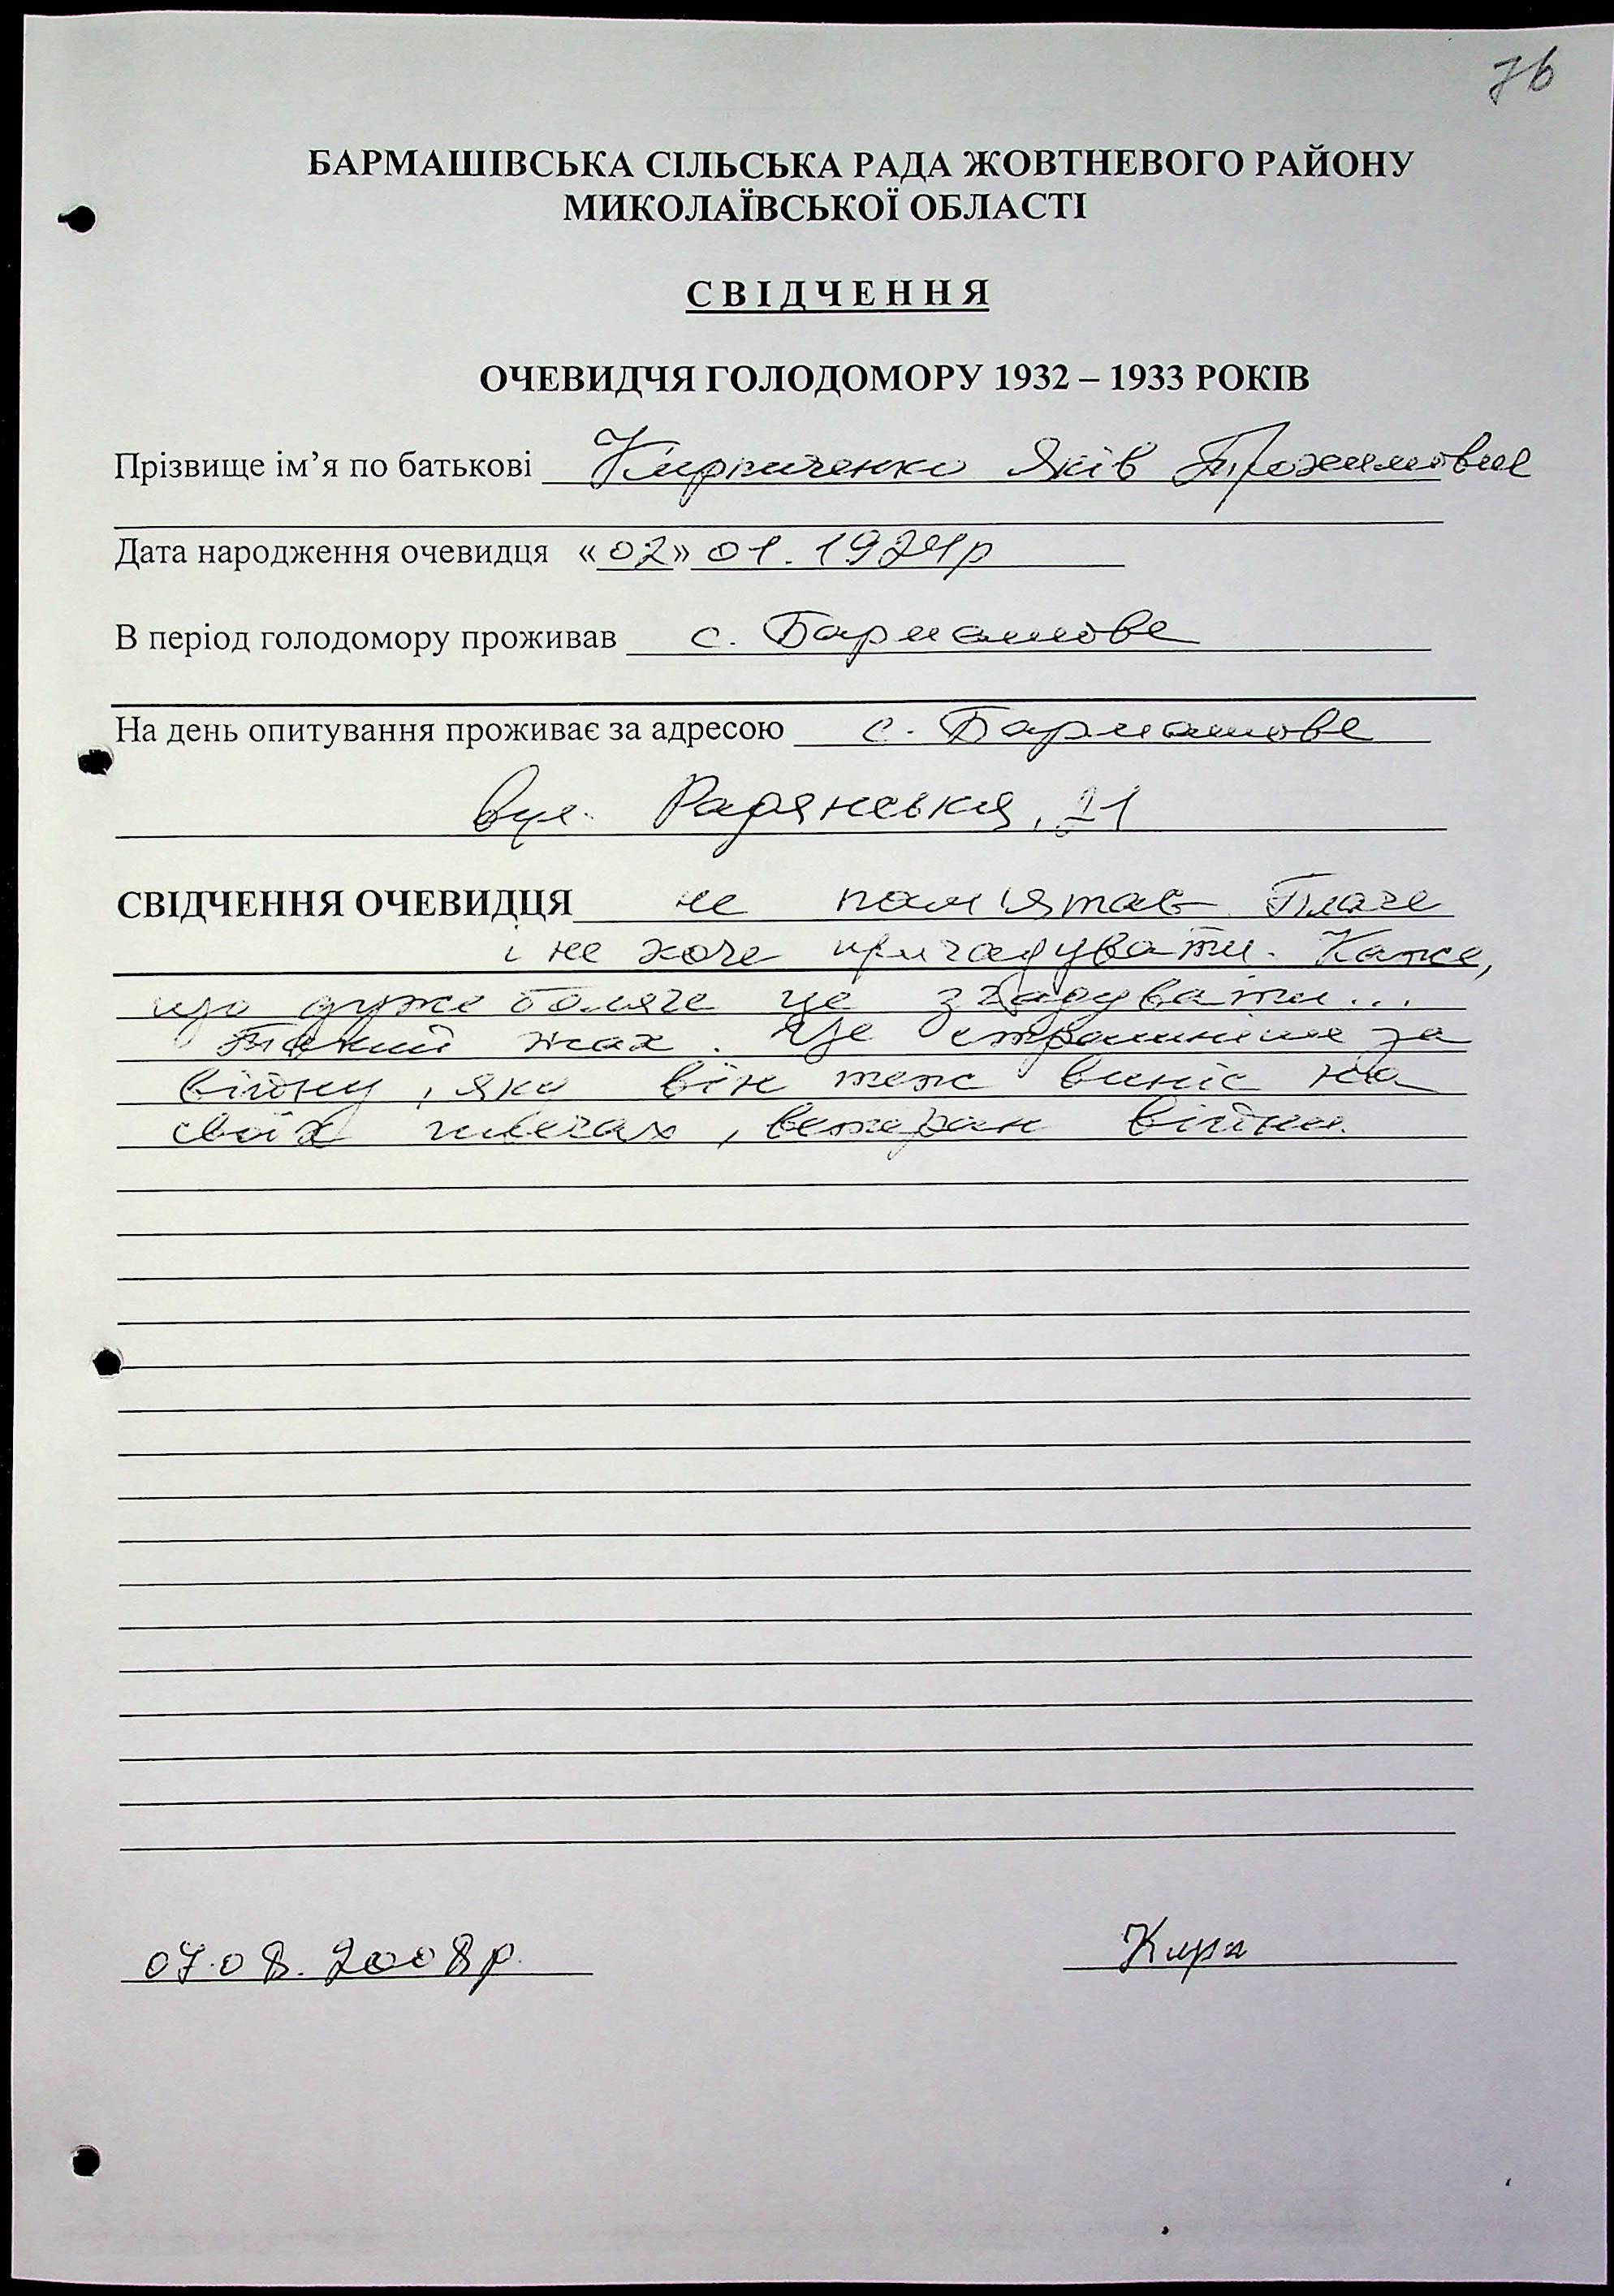 76
БАРМАШІВСЬКА СІЛЬСЬКА РАДА ЖОВТНЕВОГО РАЙОНУ
МИКОЛАЇВСЬКОЇ ОБЛАСТІ
СВІДЧЕННЯ
ОЧЕВИДЧЯ ГОЛОДОМОРУ 1932 – 1933 РОКІВ
Прізвище ім’я по батькові Кирпиченко Яків
Дата народження очевидця «02» 01. 1924р
В період голодомору проживав с. Бармашове
На день опитування проживає за адресою с. Бармашове
вул. Радянська, 21
СВІДЧЕННЯ ОЧЕВИДЦЯ не пам'ятає Плаче
і не хоче пригадувати. Каже,
що дуже боляче це згадувати...
Такий жах. Це страшніше за
війну, яку він теж виніс на
своїх плечах, ветеран війни.
07.08.2008р.